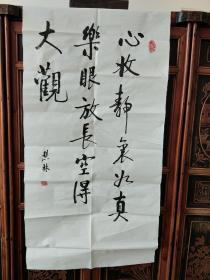 心收靜裏尋真
樂眼放長空得
大觀